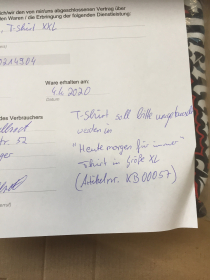 ich/wir den von mir/uns abgeschlossenen Vertrag über
den Waren / die Erbringung der folgenden Dienstleistung:
T-Shirt XXL
Ware erhalten am:
4.6.2020
(Datum)
des Verbrauchers
T-Shirt soll bitte umgetauscht
werden in
"Heute morgen für immer"
str. 52
Tshirt in Größe XL
(Artikelnr. KB00057)